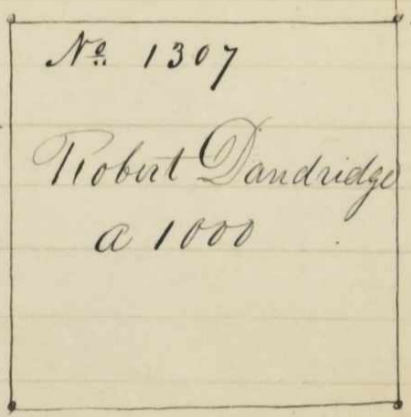 No. 1307
Robert Dandridge
a 1000